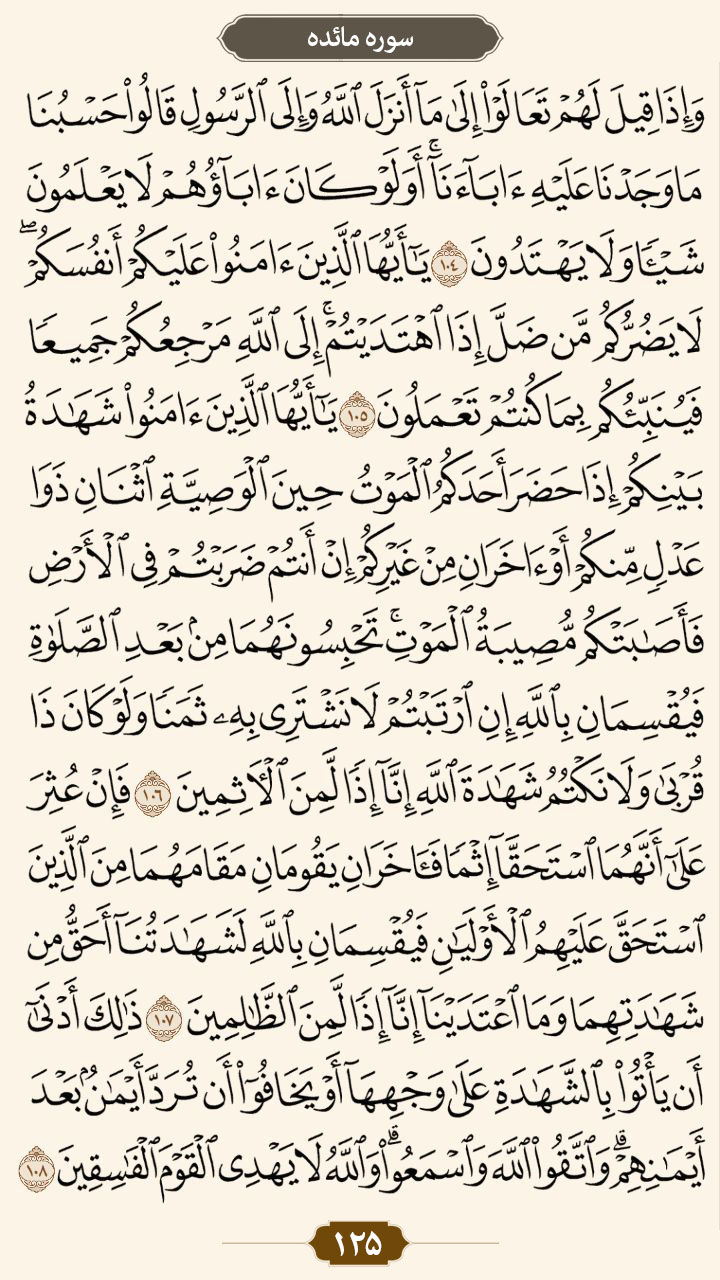 سوره مائده
وَإِذَا قِيلَ لَهُمْ تَعَالَوْا۟ إِلَىٰ مَآ أَنزَلَ ٱللَّهُ وَإِلَى ٱلرَّسُولِ قَالُوا۟ حَسْبُنَا
مَا وَجَدْنَا عَلَيْهِ ءَابَآءَنَآ ۚ أَوَلَوْ كَانَ ءَابَآؤُهُمْ لَا يَعْلَمُونَ
شَيْـًٔا وَلَا يَهْتَدُونَ ١٠٤ يَـٰٓأَيُّهَا ٱلَّذِينَ ءَامَنُوا۟ عَلَيْكُمْ أَنفُسَكُمْ ۖ
لَا يَضُرُّكُم مَّن ضَلَّ إِذَا ٱهْتَدَيْتُمْ ۚ إِلَى ٱللَّهِ مَرْجِعُكُمْ جَمِيعًا
فَيُنَبِّئُكُم بِمَا كُنتُمْ تَعْمَلُونَ ١٠٥ يَـٰٓأَيُّهَا ٱلَّذِينَ ءَامَنُوا۟ شَهَـٰدَةُ
بَيْنِكُمْ إِذَا حَضَرَ أَحَدَكُمُ ٱلْمَوْتُ حِينَ ٱلْوَصِيَّةِ ٱثْنَانِ ذَوَا
عَدْلٍ مِّنكُمْ أَوْ ءَاخَرَانِ مِنْ غَيْرِكُمْ إِنْ أَنتُمْ ضَرَبْتُمْ فِى ٱلْأَرْضِ
فَأَصَـٰبَتْكُم مُّصِيبَةُ ٱلْمَوْتِ ۚ تَحْبِسُونَهُمَا مِنۢ بَعْدِ ٱلصَّلَوٰةِ
فَيُقْسِمَانِ بِٱللَّهِ إِنِ ٱرْتَبْتُمْ لَا نَشْتَرِى بِهِۦ ثَمَنًا وَلَوْ كَانَ ذَا
قُرْبَىٰ وَلَا نَكْتُمُ شَهَـٰدَةَ ٱللَّهِ إِنَّآ إِذًا لَّمِنَ ٱلْـَٔاثِمِينَ ١٠٦ فَإِنْ عُثِرَ
عَلَىٰٓ أَنَّهُمَا ٱسْتَحَقَّآ إِثْمًا فَـَٔاخَرَانِ يَقُومَانِ مَقَامَهُمَا مِنَ ٱلَّذِينَ
ٱسْتَحَقَّ عَلَيْهِمُ ٱلْأَوْلَيَـٰنِ فَيُقْسِمَانِ بِٱللَّهِ لَشَهَـٰدَتُنَآ أَحَقُّ مِن
شَهَـٰدَتِهِمَا وَمَا ٱعْتَدَيْنَآ إِنَّآ إِذًا لَّمِنَ ٱلظَّـٰلِمِينَ ١٠٧ ذَٰلِكَ أَدْنَىٰٓ
أَن يَأْتُوا۟ بِٱلشَّهَـٰدَةِ عَلَىٰ وَجْهِهَآ أَوْ يَخَافُوٓا۟ أَن تُرَدَّ أَيْمَـٰنٌۢ بَعْدَ
أَيْمَـٰنِهِمْ ۗ وَٱتَّقُوا۟ ٱللَّهَ وَٱسْمَعُوا۟ ۗ وَٱللَّهُ لَا يَهْدِى ٱلْقَوْمَ ٱلْفَـٰسِقِينَ ١٠٨
۱۲۵